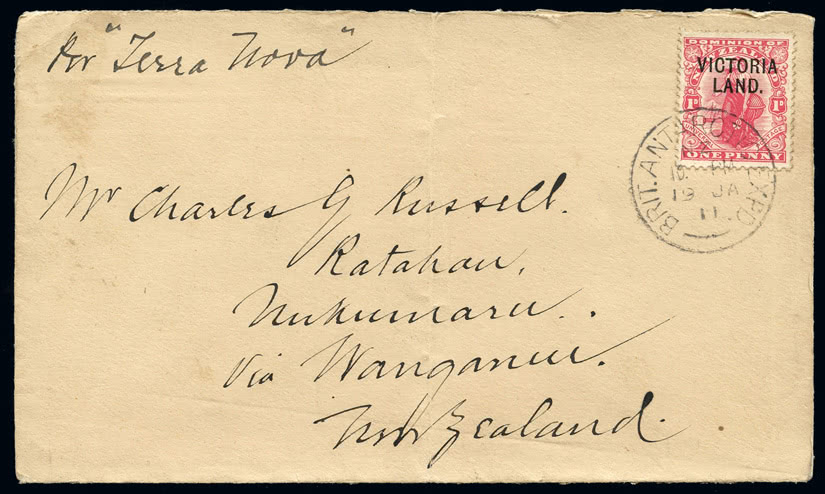 Per "Terra Nova"
DOMINION OF
NEW ZEALAND
VICTORIA
LAND.
1D 1D
UNIVERSAL POSTAGE
ONE PENNY
BRIT. ANTARCTIC EXPD.
19 JA
11
Mr Charles G Russell.
Ratahau,
Nukumaru.
via Wanganui.
New Zealand.